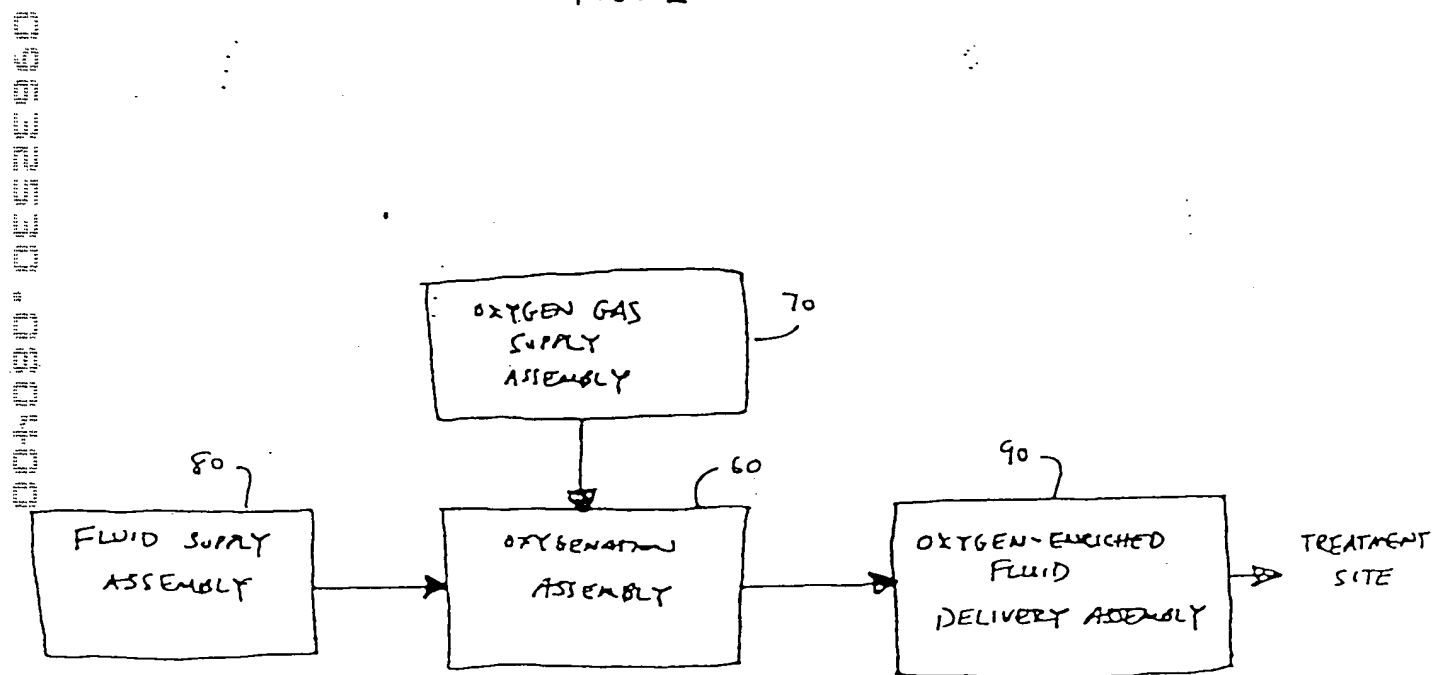 09632530.080400
OXYGEN GAS
SUPPLY
ASSEMBLY
70
80
60
90
FLUID SUPPLY
ASSEMBLY
OXYGENATION
ASSEMBLY
OXYGEN-ENRICHED
FLUID
DELIVERY ASSEMBLY
TREATMENT
SITE